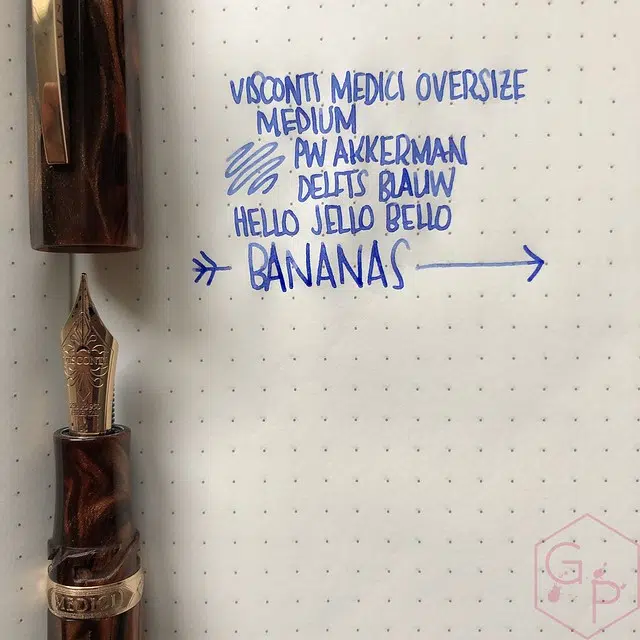 VISCONTI MEDICI OVERSIZE
MEDIUM
PW AKKERMAN
DELFTS BLAUW
HELLO JELLO BELLO
BANANAS
VISCONTI
MEDICI
G P